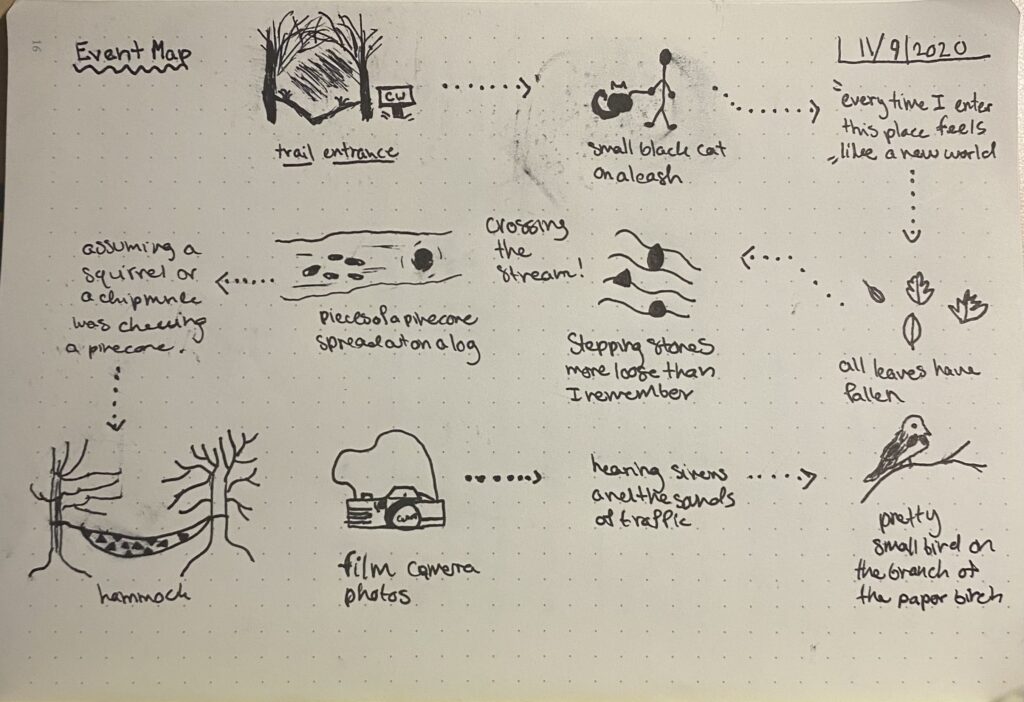 16
Event Map
11/9/2020
CU
trail entrance
small black cat
on a leash
"everytime I enter
this place feels
"like a new world
all leaves have
fallen
Crossing
the
stream!
Stepping stones
more loose than
I remember
pieces of a pinecone
spread out on a log
assuming a
squirrel or
a chipmunk
was chewing
a pinecone.
hammock
film camera
photos
hearing sirens
and the sands
of traffic
pretty
small bird on
the branch of
the paper birch